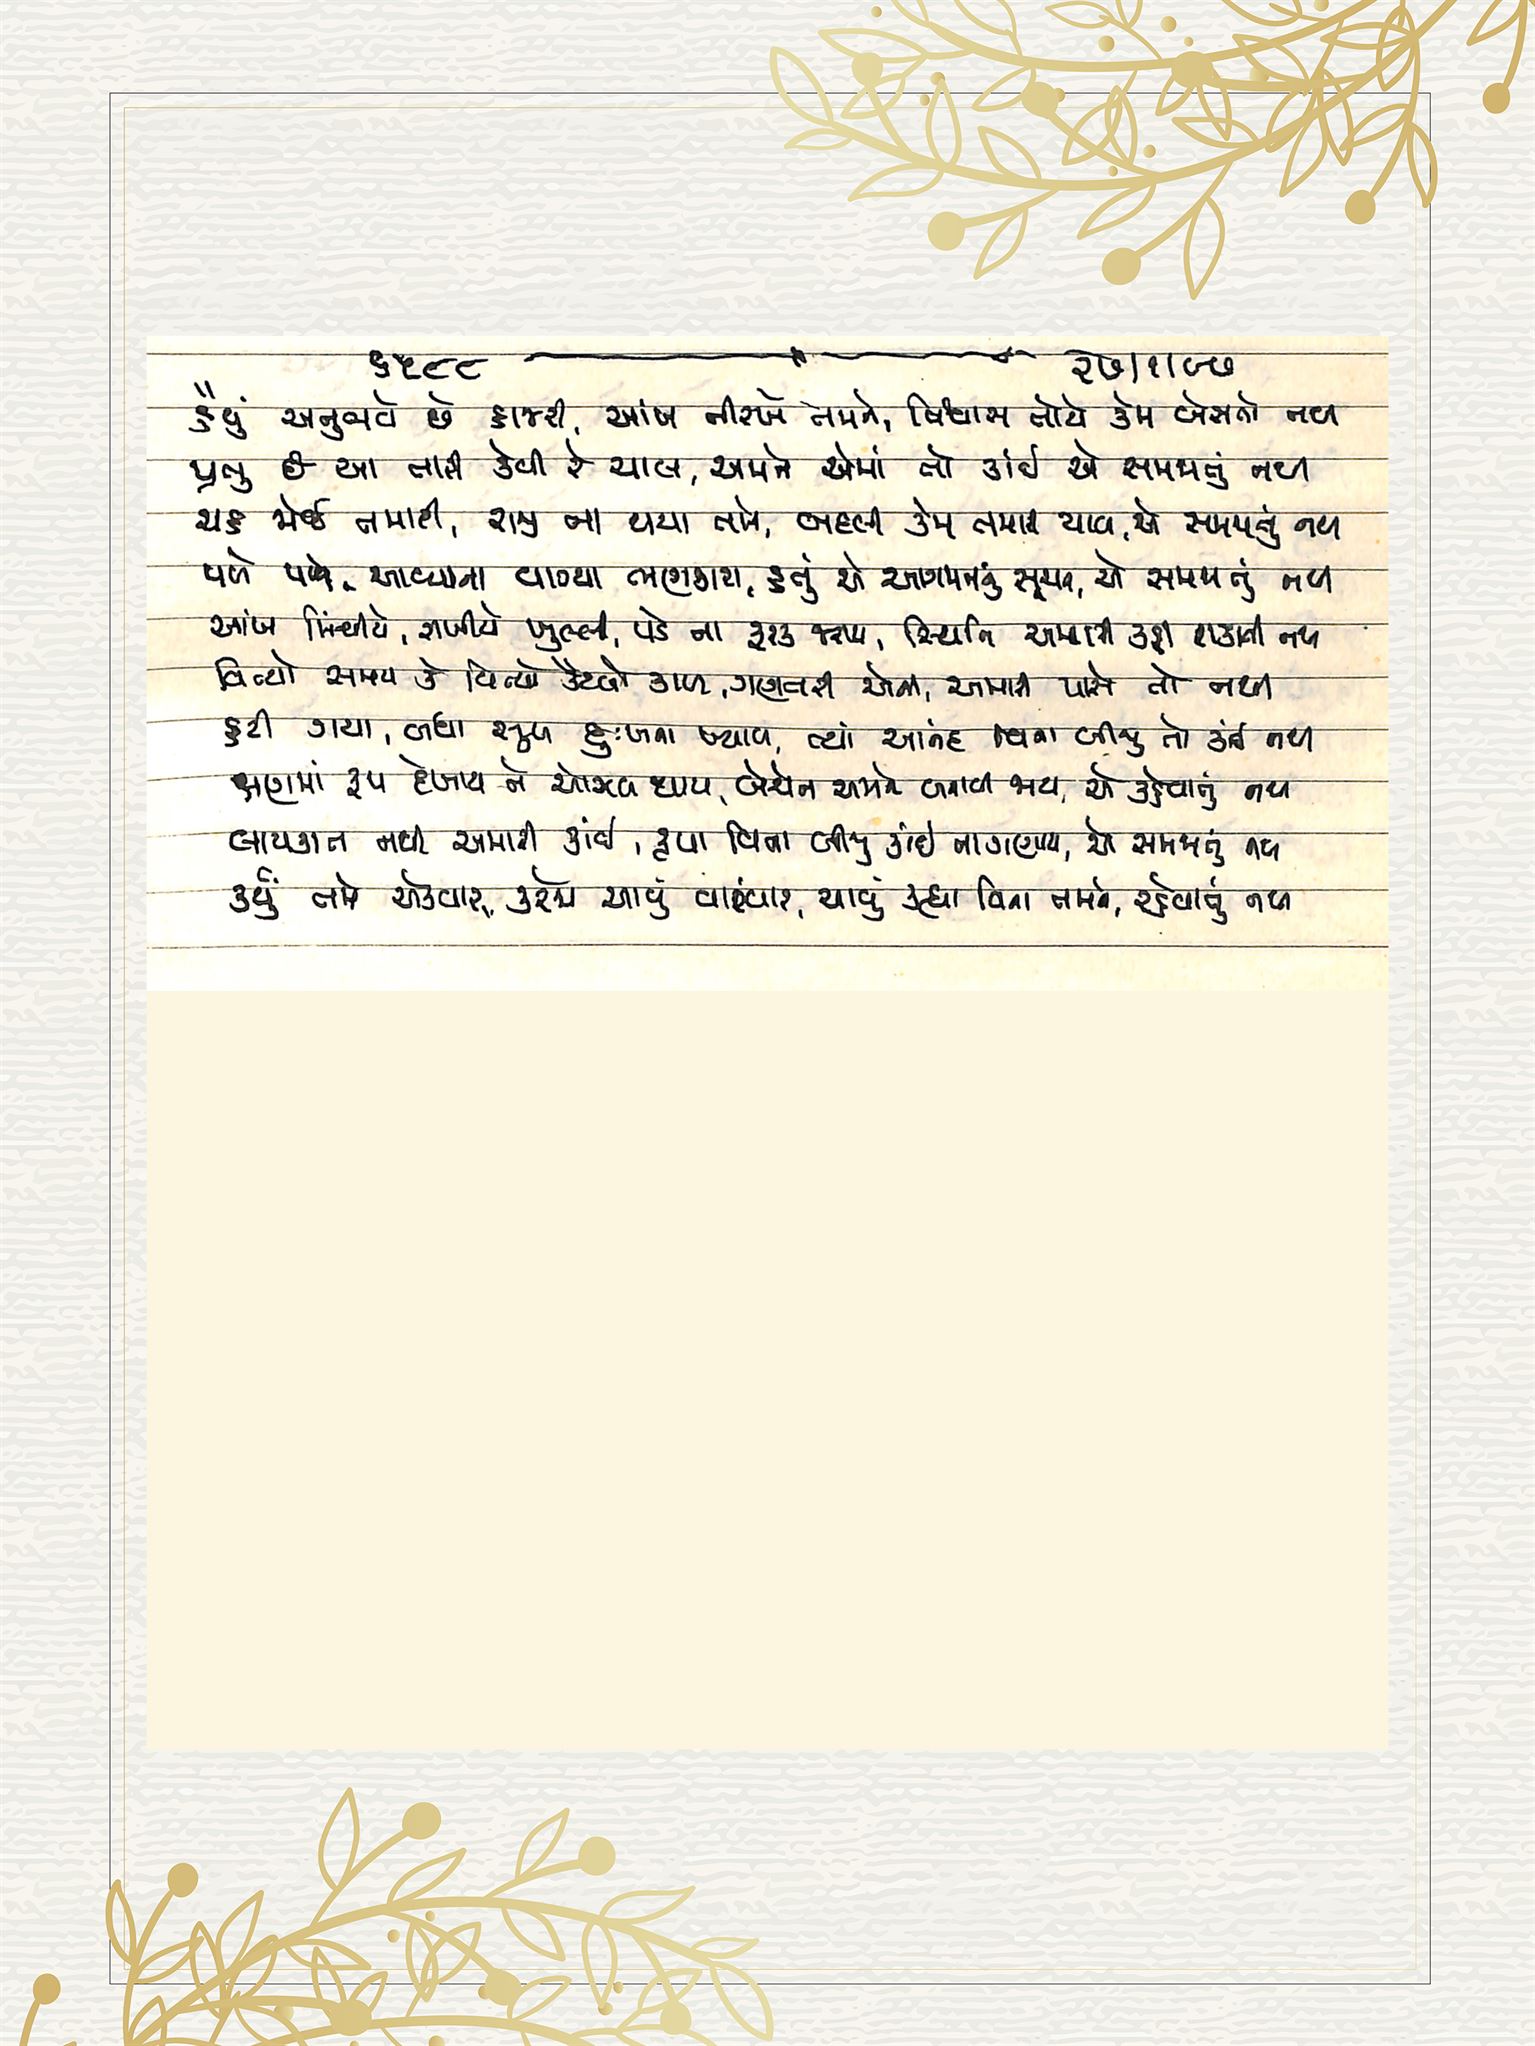 ૬૫૯૯ ૨૭/૧/૯૭
હૈયું અનુભવે છે હાજરી, આંખ નીરખે તમને, વિશ્વાસ તોયે કેમ બેસતો નથી
પ્રભુ છે આ તારી કેવી રે ચાલ, અમને એમાં તો કાંઈ એ સમજાતું નથી
ચાહ જોઈ તમારી, રાજી ના થયા તમે, બદલી કેમ તમારી ચાલ, એ સમજાતું નથી
પળે પળે, આવવાના વાગ્યા ભણકારા, હતું એ આગમનનું સૂચન, એ સમજાતું નથી
આંખ મિંચીયે, રાખીયે ખુલ્લી, પડે ના ફરક જરાય, સ્થિતિ અમારી કહી શકાતી નથી
વિત્યો સમય કે વિત્યો કેટલો કાળ, ગણતરી એની, અમારી પાસે તો નથી
હટી ગયા, બધા સુખ દુઃખના ખ્યાલ, ત્યાં આનંદ વિના બીજું તો કાંઈ નથી
ક્ષણમાં રૂપ દેખાય ને ઓઝલ થાય, બેચેન અમને બનાવી જાય, એ કહેવાતું નથી
લાયકાત નથી અમારી કાંઈ, કૃપા વિના બીજું કાંઈ ના ગણાય, એ સમજાતું નથી
કર્યું તમે એકવાર, કરશો આવું વારંવાર, આવું કહ્યા વિના તમને, રહેવાતું નથી